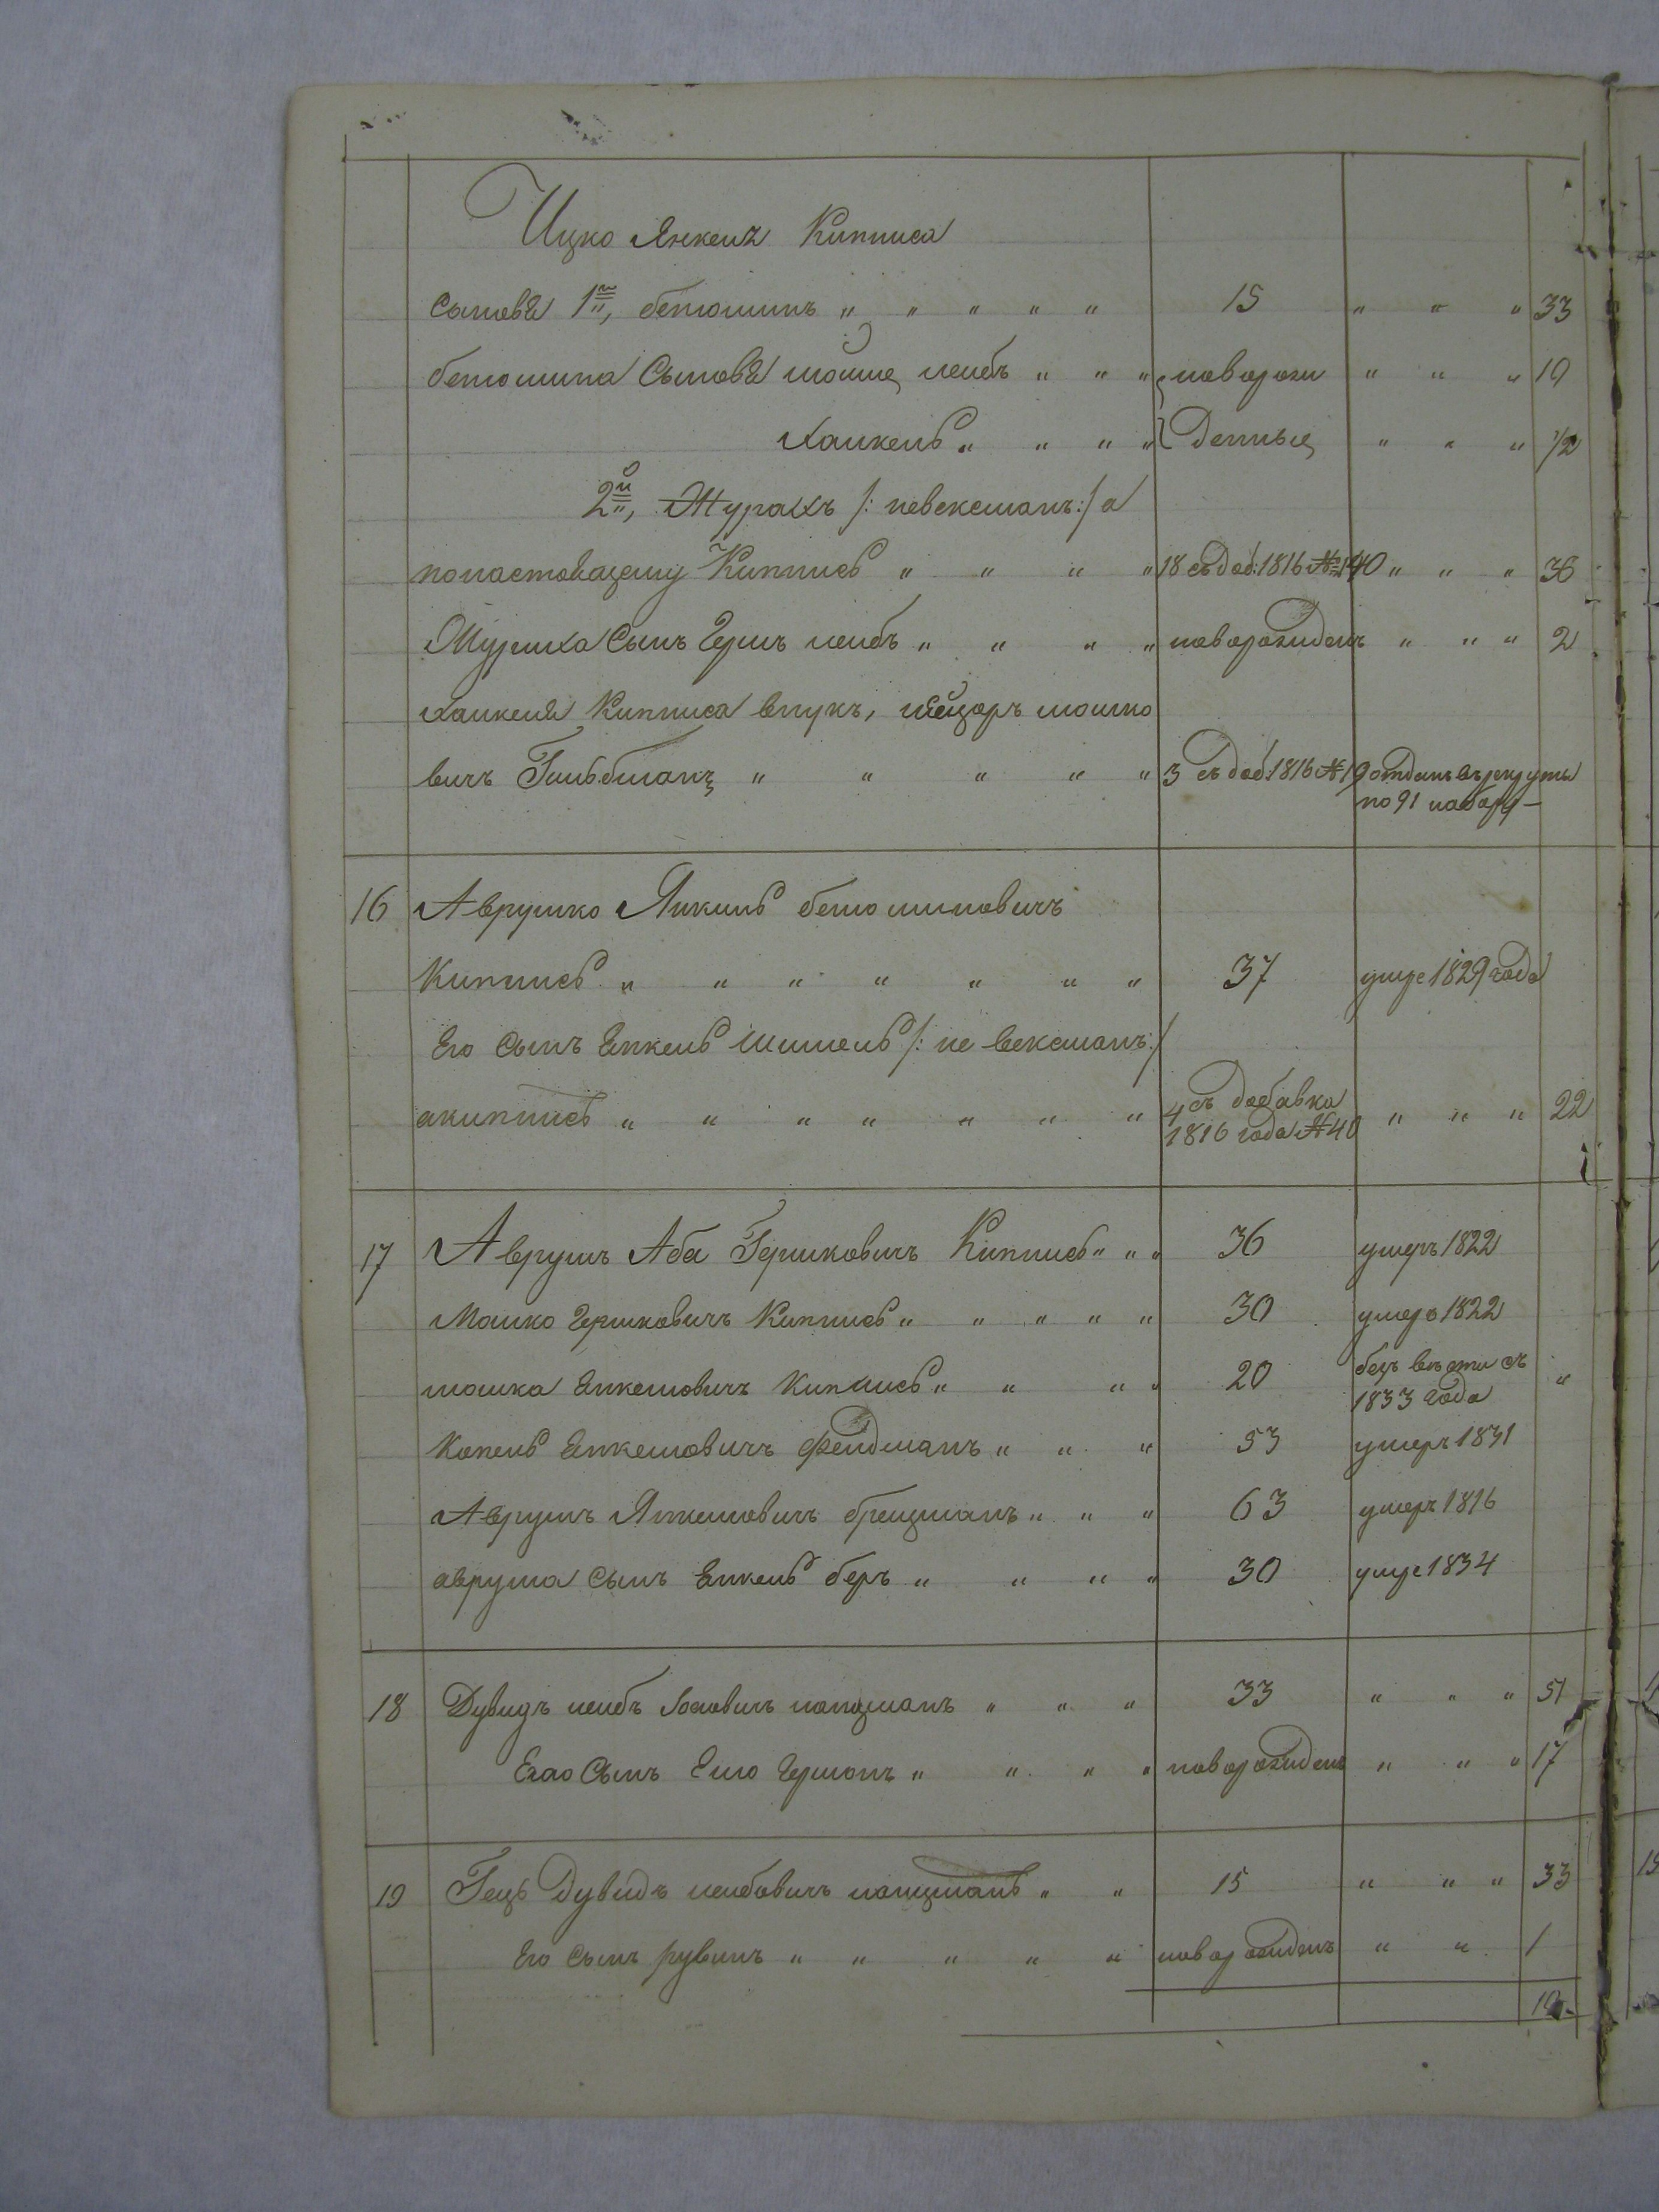 Ицко Янкеля Киписа
сыновя 1й, бенюминъ " " " " " 15 " " " 33
бенюмина Сыновя мошка лейбъ " " " новорож " " " 10
Хаикель " " " " денные " " " 1/2
2й, Мурахъ /: невексманъ :/ а
понастоващему Киписъ " " " " 18 съ доб: 1816 №140 " " " 36
Мурыха Сынъ Гершъ лейбъ " " " " новорожденъ " " " 2
Хаикеля Киписа внукъ, мошко
вичъ " " " " " 3 съ доб: 1816 №19 отданъ въ рекруты
по 91 набору —
16 Аврумко Янкель бенюминовичъ
Киписъ " " " " " " " 37 умре 1829 года
Его Сынъ Енкель Шмиель /: не вексманъ :/
акиписъ " " " " " " " 4 съ добавка " " " 22
1816 года №40
17 Аврумъ Аба Гершковичъ Киписъ " " " 36 умеръ 1822
Мошко Гершковичъ Киписъ " " " " " 30 умеръ 1822
мошка Енкелювичъ Киписъ " " " " 20 безъ вѣсти съ "
1833 года
Копель Енкелювичъ Фельдманъ " " " 53 умеръ 1831
Аврумъ Янкелювичъ брецманъ " " " 63 умеръ 1816
аврума Сынъ Енкель беръ " " " " 30 умре 1834
18 Дувидъ лейбъ Іосювичъ кацманъ " " " 33 " " " 51
Егао Сынъ Елю Гершонъ " " " " новорожденъ " " " 17
19 Гецъ Дувидъ лейбовичъ кацманъ " " 15 " " " 33
Его Сынъ рувинъ " " " " " новорожденъ " " 1
10